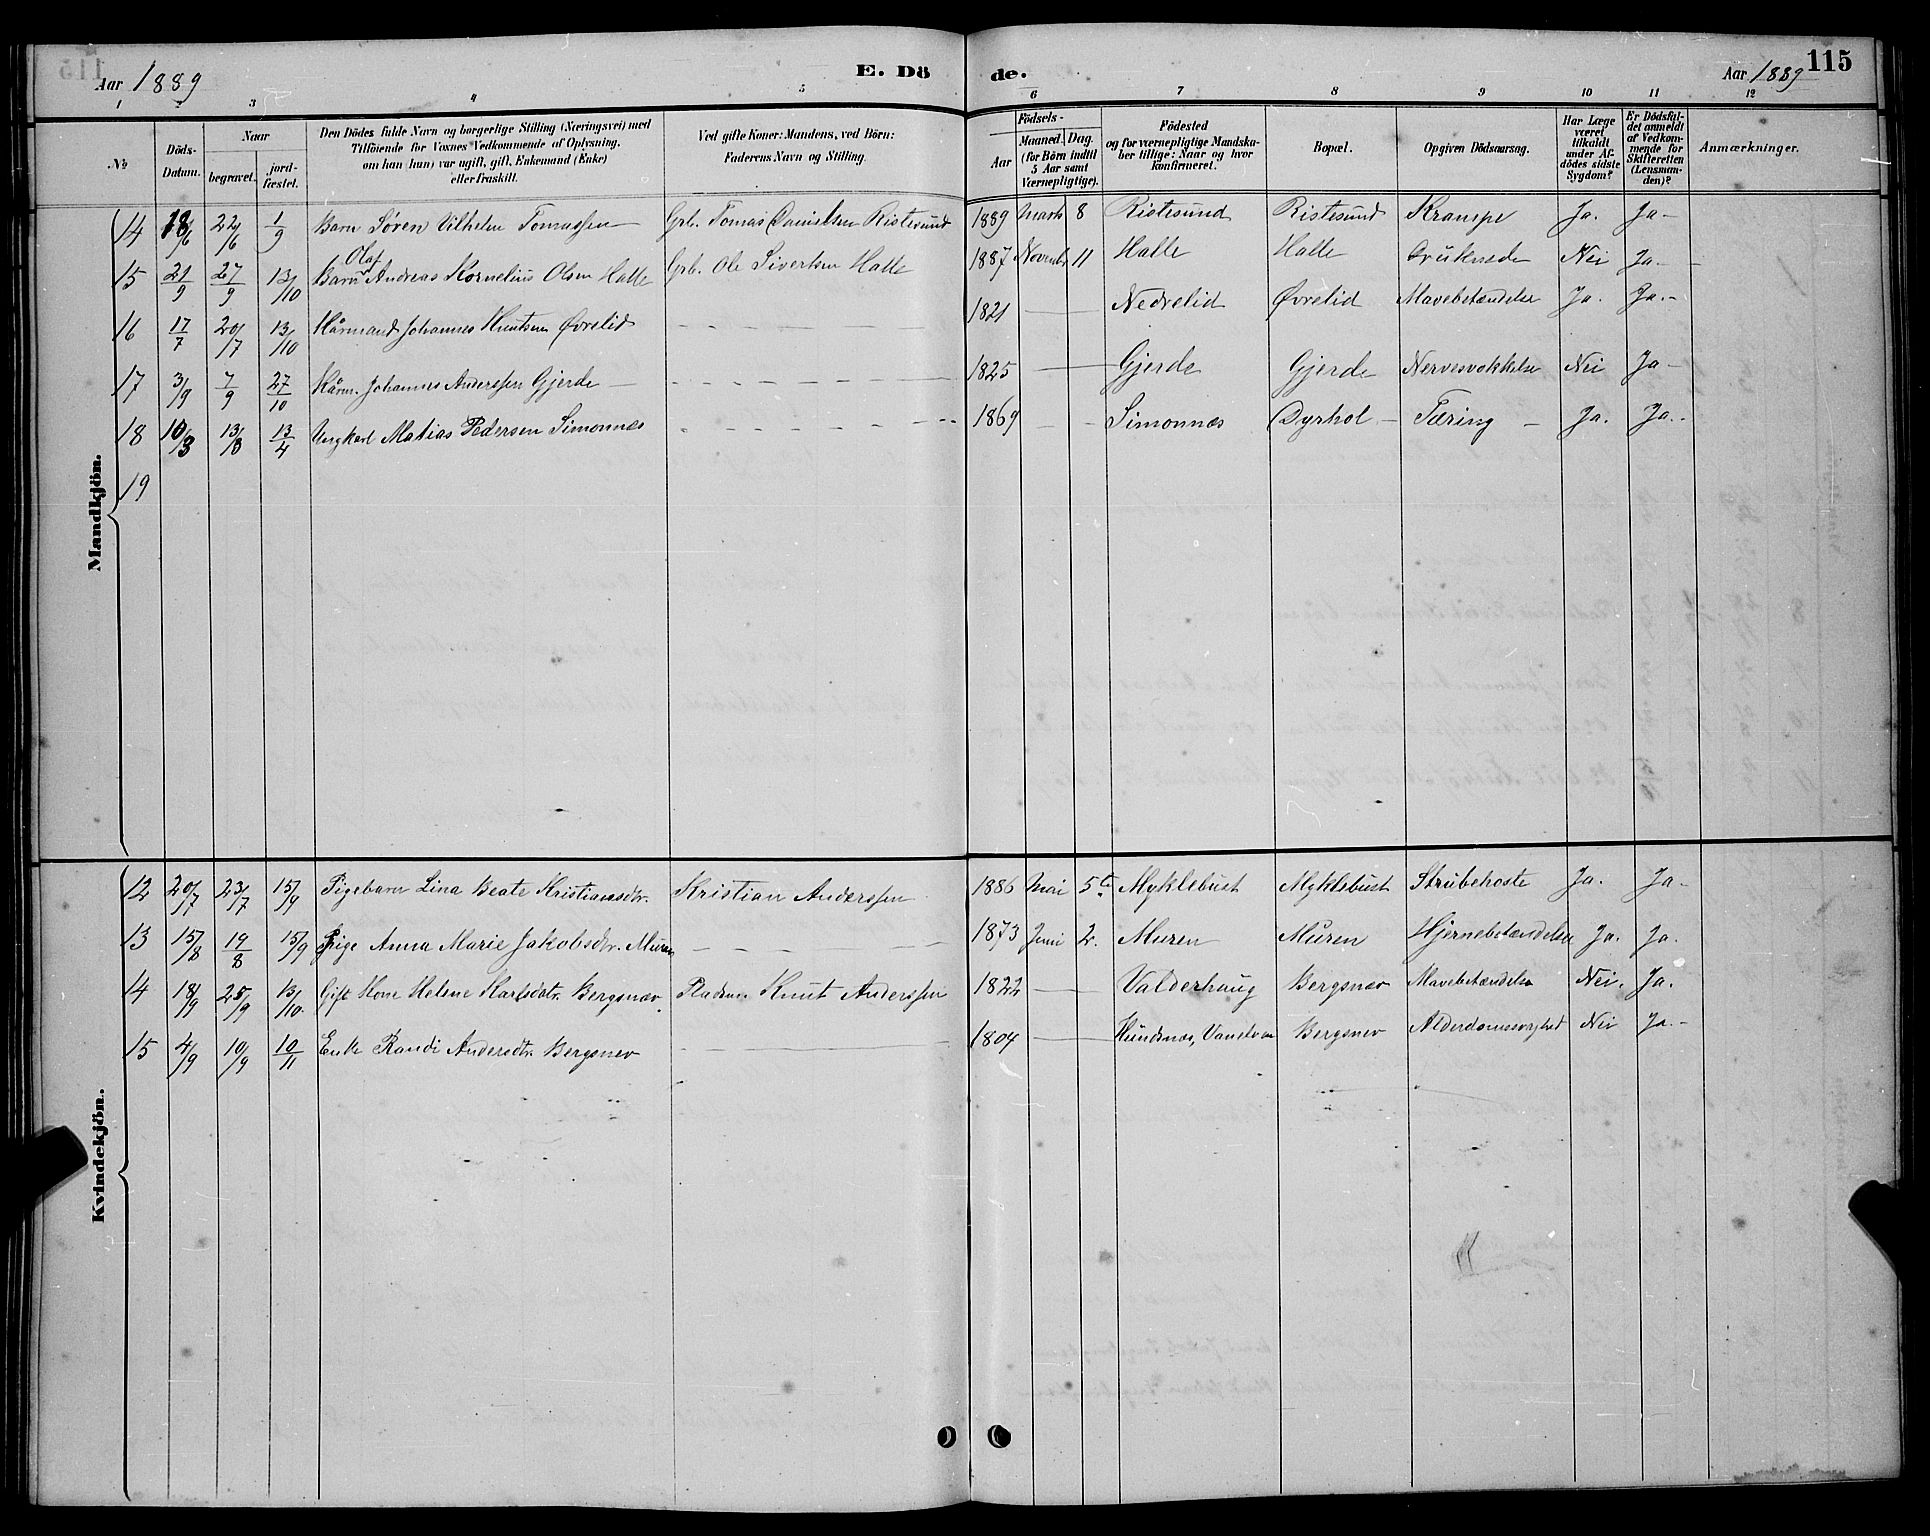 115
Aar 1889
E. Dö
de.
Aar 1889
1 2 3 4 5
6 7 8 9 10 11 12
No
Döds-
Datum.
Naar
begravet.
jord-
fæstet.
Den Dödes fulde Navn og borgerlige Stilling (Næringsvei) med
Tilföiende for Voxnes Vedkommende af Oplysning,
om han (hun) var ugift, gift, Enkemand (Enke)
eller fraskilt.
Ved gifte Koner: Mandens, ved Börn:
Faderens Navn og Stilling.
Födsels-
Aar
Maaned. Dag.
(for Börn indtil
5 Aar samt
Værnepligtige).
Födested
og for værnepligtige Mandska-
ber tillige: Naar og hvor
konfirmeret.
Bopæl.
Opgiven Dödsaarsag.
Har Læge
været
tilkaldt
under Af-
dödes sidste
Sygdom?
Er Dödsfal-
det anmeldt
af Vedkom-
mende for
Skifteretten
(Lensman-
den)?
Anmærkninger.
Mandkjön.
14 18/6 22/6 1/9 Barn Søren Vilhelm Tomassen Grb. Tomas Danielsen Ristesund 1889 Marts 8 Ristesund Ristesund Krampe Ja. Ja-
Olaf
15 21/9 27/9 13/10 Barn Andreas Kornelius Olsen Halle Grb. Ole Sivertsen Halle 1887 Novembr 11 Halle Halle Druknede Nei Ja-
16 17/7 20/7 13/10 Kårmand Johannes Knutsen Øvrelid 1821 Nedrelid Øvrelid Mavebetændelse Ja. Ja.-
17 3/9 7/9 27/10 Kårm. Johannes Anderssen Gjerde 1825 Gjerde Gjerde Nervesvækkelse Nei Ja-
18 10/3 13/3 13/4 Ungkarl Matias Pedersen Simonnes 1869 Simonnes Dyrhol- Tæring - Ja. Ja.-
19
Kvindekjön.
12 20/7 23/7 15/9 Pigebarn Lina Beate Kristiansdtr. Kristian Anderssen 1886 Mai 5te Myklebust Myklebust Strubehoste Ja. Ja-
13 15/8 19/8 15/9 Pige Anna Marie Jakobsdtr. Muren 1873 Juni 2. Muren Muren Hjernebetændelse Ja. Ja.
14 18/9 25/9 13/10. Gift Kone Helene Karlsdatr. Bergsnev. Pladsm. Knut Anderssen 1822 Valderhaug Bergsnev Mavebetændelse Nei. Ja.
15 4/9 10/9 10/11 Enke Randi Andersdtr. Bergsnev 1804 Hundsnæs, Vanelven Bergsnev Alderdomssvaghed Nei Ja.-